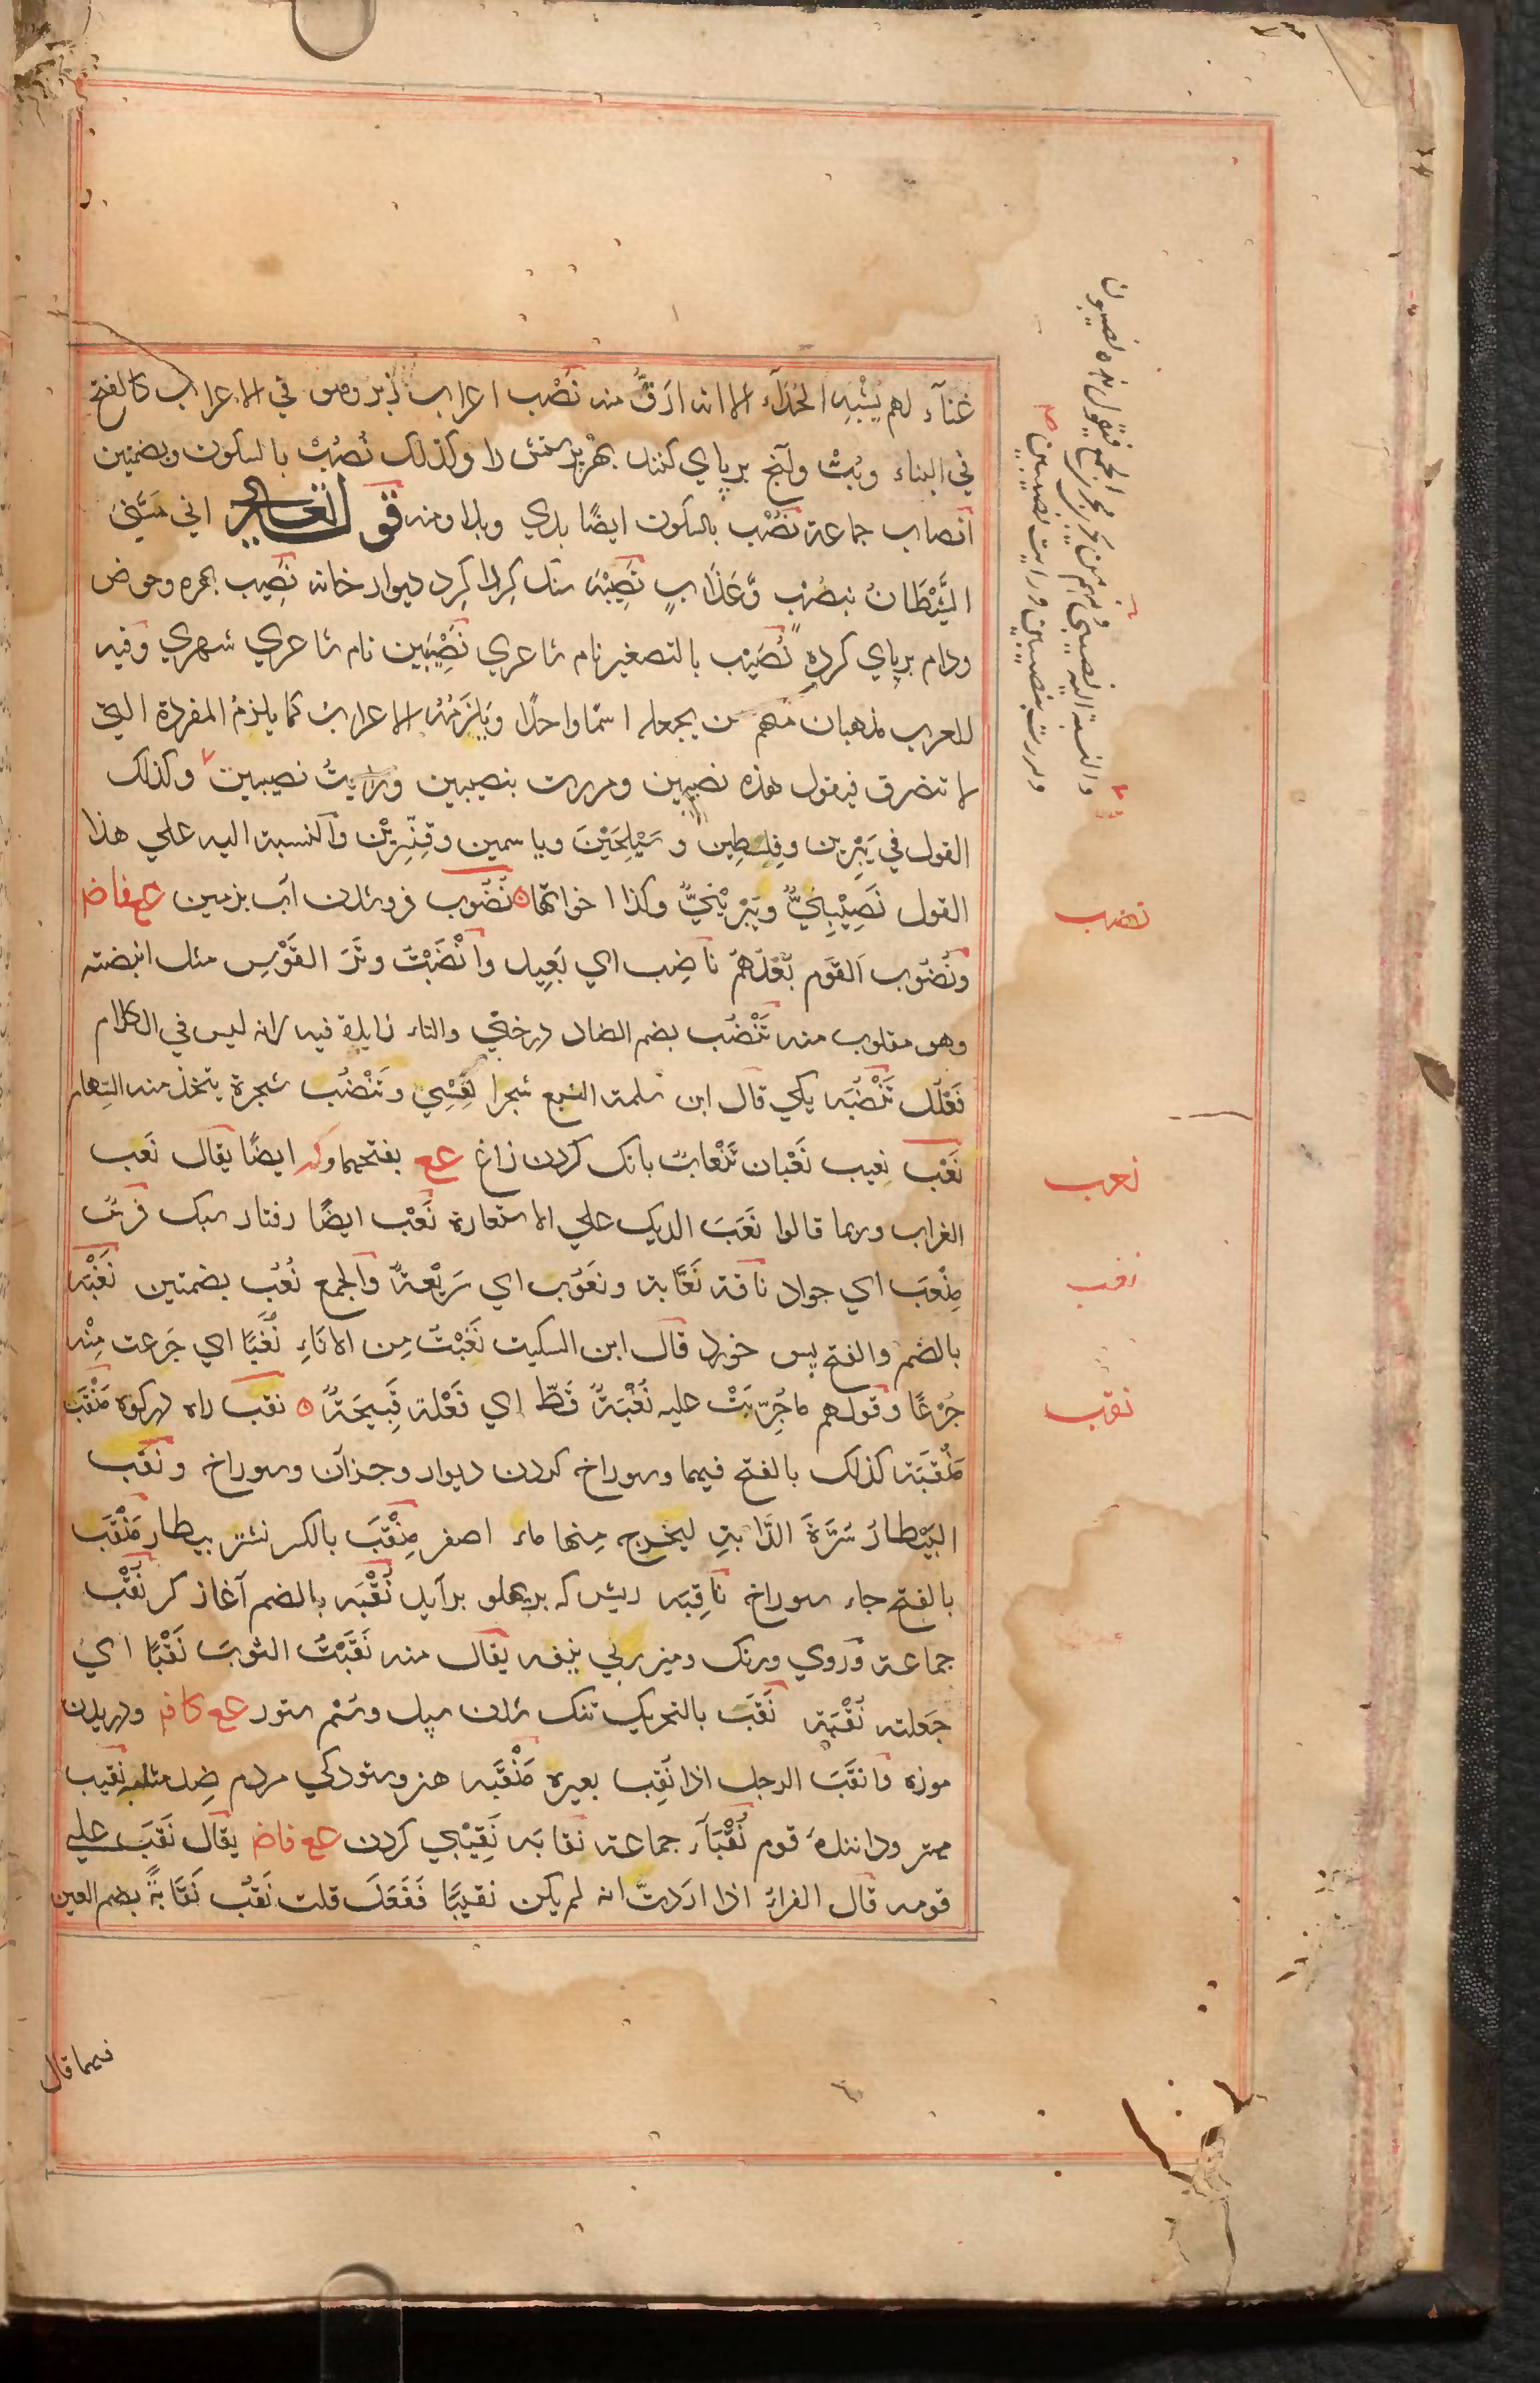 غنآء لهم يُشْبِه الحُدَآء الا انه ارَقُّ منه نَصْب اعراب زبر وهو في الاعراب كالفتح
في البناء وبُتْ وآنچ برپاي كنند بهر پرستش را وكذلك نُصُبْ بالسكون وبضمتين
اَنصاب جماعة نُصْب بالسكون ايضًا بدي وبلا ومنه قوله تعالى اني مَسَّنِيَ
الشَّيْطَانُ بنُصْبٍ وَّعَذَابٍ نَصِيْبَه سنك كِردا كِرد ديوار خانه نَصِيب بهره وحوض
ودام برپاي كرده نُصَيْب بالتصغير نام شاعري نَصِيْبَين نام شهري وفيه
للعرب مذهبان منهم من يجعله اسمًا واحدًا ويَلزَمُه الاعراب كما يلزم المفردة التي
لا تنصرف فيقول هذه نصيبين ومررت بنصيبين ورَايتُ نصيبين وكذلك
القول في يَبْرِين وفِلِسطِين وسَيْلَحَيْنَ وياسمين وقِنِّسرِيْن والنسبة اليه علي هذا
القول نَصِيْبِيْنِيٌّ ويَبْرِيْنِيٌّ وكذا اخواتها نُضُوب فروشدن آب بزمين عع فاض
ونُضُوب القَوم بُعْدُهم نَاضِب اي بَعِيد وانْضَبْتُ وَتَرَ القَوْسِ مثل انبضته
وهو مقلوب منه تَنْضُب بضم الضاد درختي والتاء زايدة فيه لانه ليس في الكلام
فَعْلُل تَنْضُبَه يكي قال ابن سلمة النبع شجر القِسِي وتَنْضُب شجرة يتخذ منه السِّهام
نَعْب نَعِيب نَعْبان تَنْعاب بانك كردن زاغ عع بفتحهما وكه ايضًا يقال نَعب
الغراب وربما قالوا نَعَبَ الديك علي الاستعارة نَعْب ايضًا رفتار سبك فَرسٌ
مِنْعَب اي جواد ناقة نَعَّابة ونَعُوب اي سَرِيْعةٌ والجمع نُعُب بضمتين نُغْبَه
بالضم والفتح پس خورد قال ابن السكيت نَغَبْتُ مِن الانَاءِ نُغْبًا اي جَرعت مِنْه
جُرْعًا وقولهم ما جُرِّبَتْ عليه نُغْبَةٌ قَطّ اي فَعْلة قَبِيحَةٌ نقب راه دركوه مَنْقَب
مَنْقَبَة كذلك بالفتح فيهما وسوراخ كردن ديوار وجزآن وسوراخ ونَقَب
البَيْطارُ سُرَّةَ الدَّابةِ ليخرج مِنها ماء اصفر مِنْقَب بالكسر نشتر بيطار مَنْقَب
بالفتح جاء سوراخ نَاقِبَه ريش كه برپهلو برآيد نُقْبَه بالضم آغاز كر نُقْب
جماعة وروي ورنك وميزر بي نيفه يقال منه نَقَبْتُ الثوبَ نَقْبًا اي
جَعلته نُقْبَة نَقَب بالتحريك تنك شدن سپل وسُم ستور عع كاف ودريدن
موزه وانقَبَ الرجل اذا نَقِب بعيره مَنْقَبَه هنر وستودكي مردم ضد مثلبه نَقِيب
مهتر وداننده قوم نُقَبَآء جماعة نقابَه نَقِيْبي كردن عع فاض يقال نَقَبَ علي
قومه قال الفراء اذا اردتَّ انه لم يكن نقيبًا ففَعَل قلت نَقُب نَقَابةً بضم العين
فيهما قال
نضب
نعب
نغب
نقب
ومنهم من يجريه مجري الجمع فيقول هذه نصيبون
ومررت بنصيبين ورايت نصيبين
والنسبة اليه نصيبي